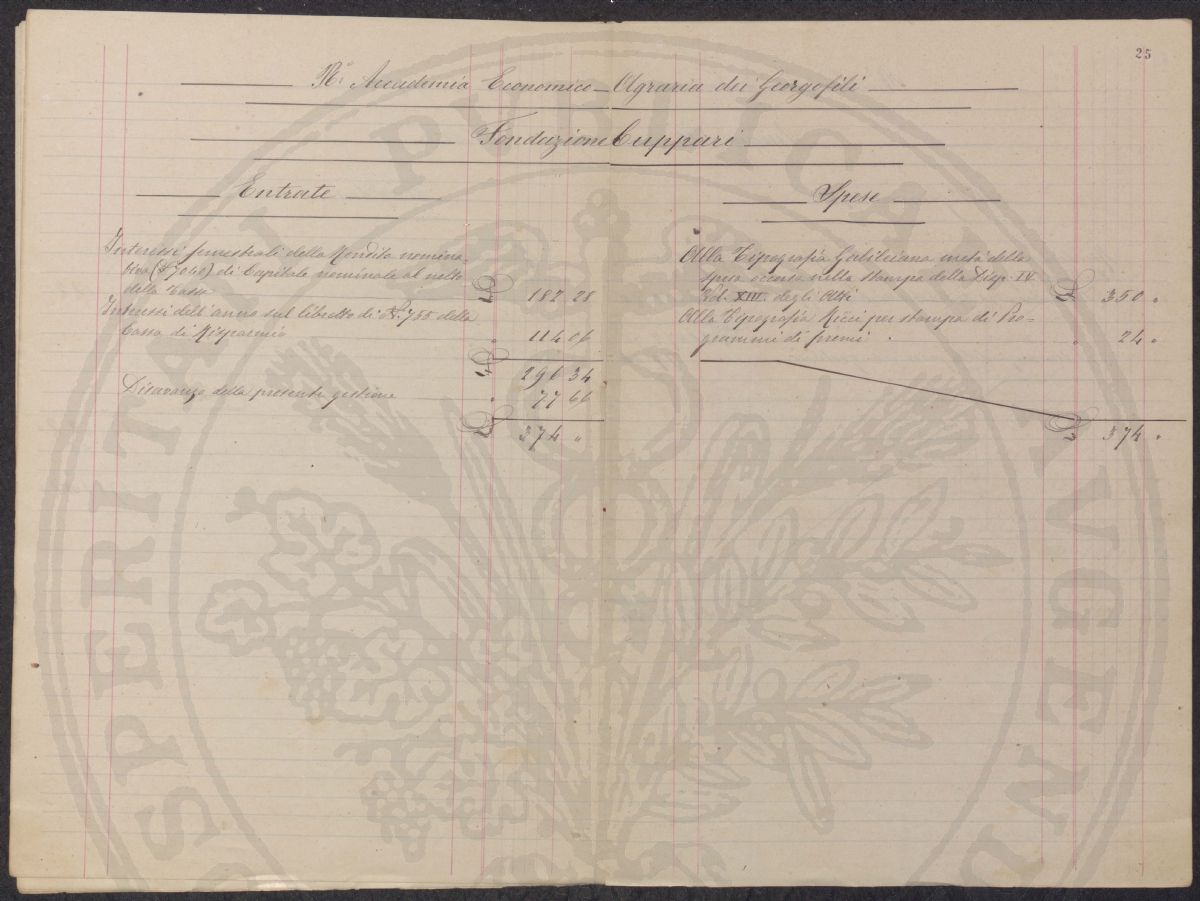 25
R.ª Accademia Economico-Agraria dei Georgofili
Fondazione Cuppari
Entrate
Interessi semestrali della Rendita nomina-
tiva (£7040) di Capitale nominale al netto
della Tassa £ 182 28
Interessi dell'anno sul libretto di N. 755 della
Cassa di Risparmio " 114 06
£ 296 34
Disavanzo della presente gestione " 77 66
£ 374 "
Spese
Alla Tipografia Galileiana metà della
spesa occorsa nella stampa della Disp. IV
Vol. XIII. degli Atti £ 350 "
Alla Tipografia Ricci per stampa di Pro-
grammi di premi " 24 "
£ 374 "
PROSPERITATI PUBLICAE AVGENDAE